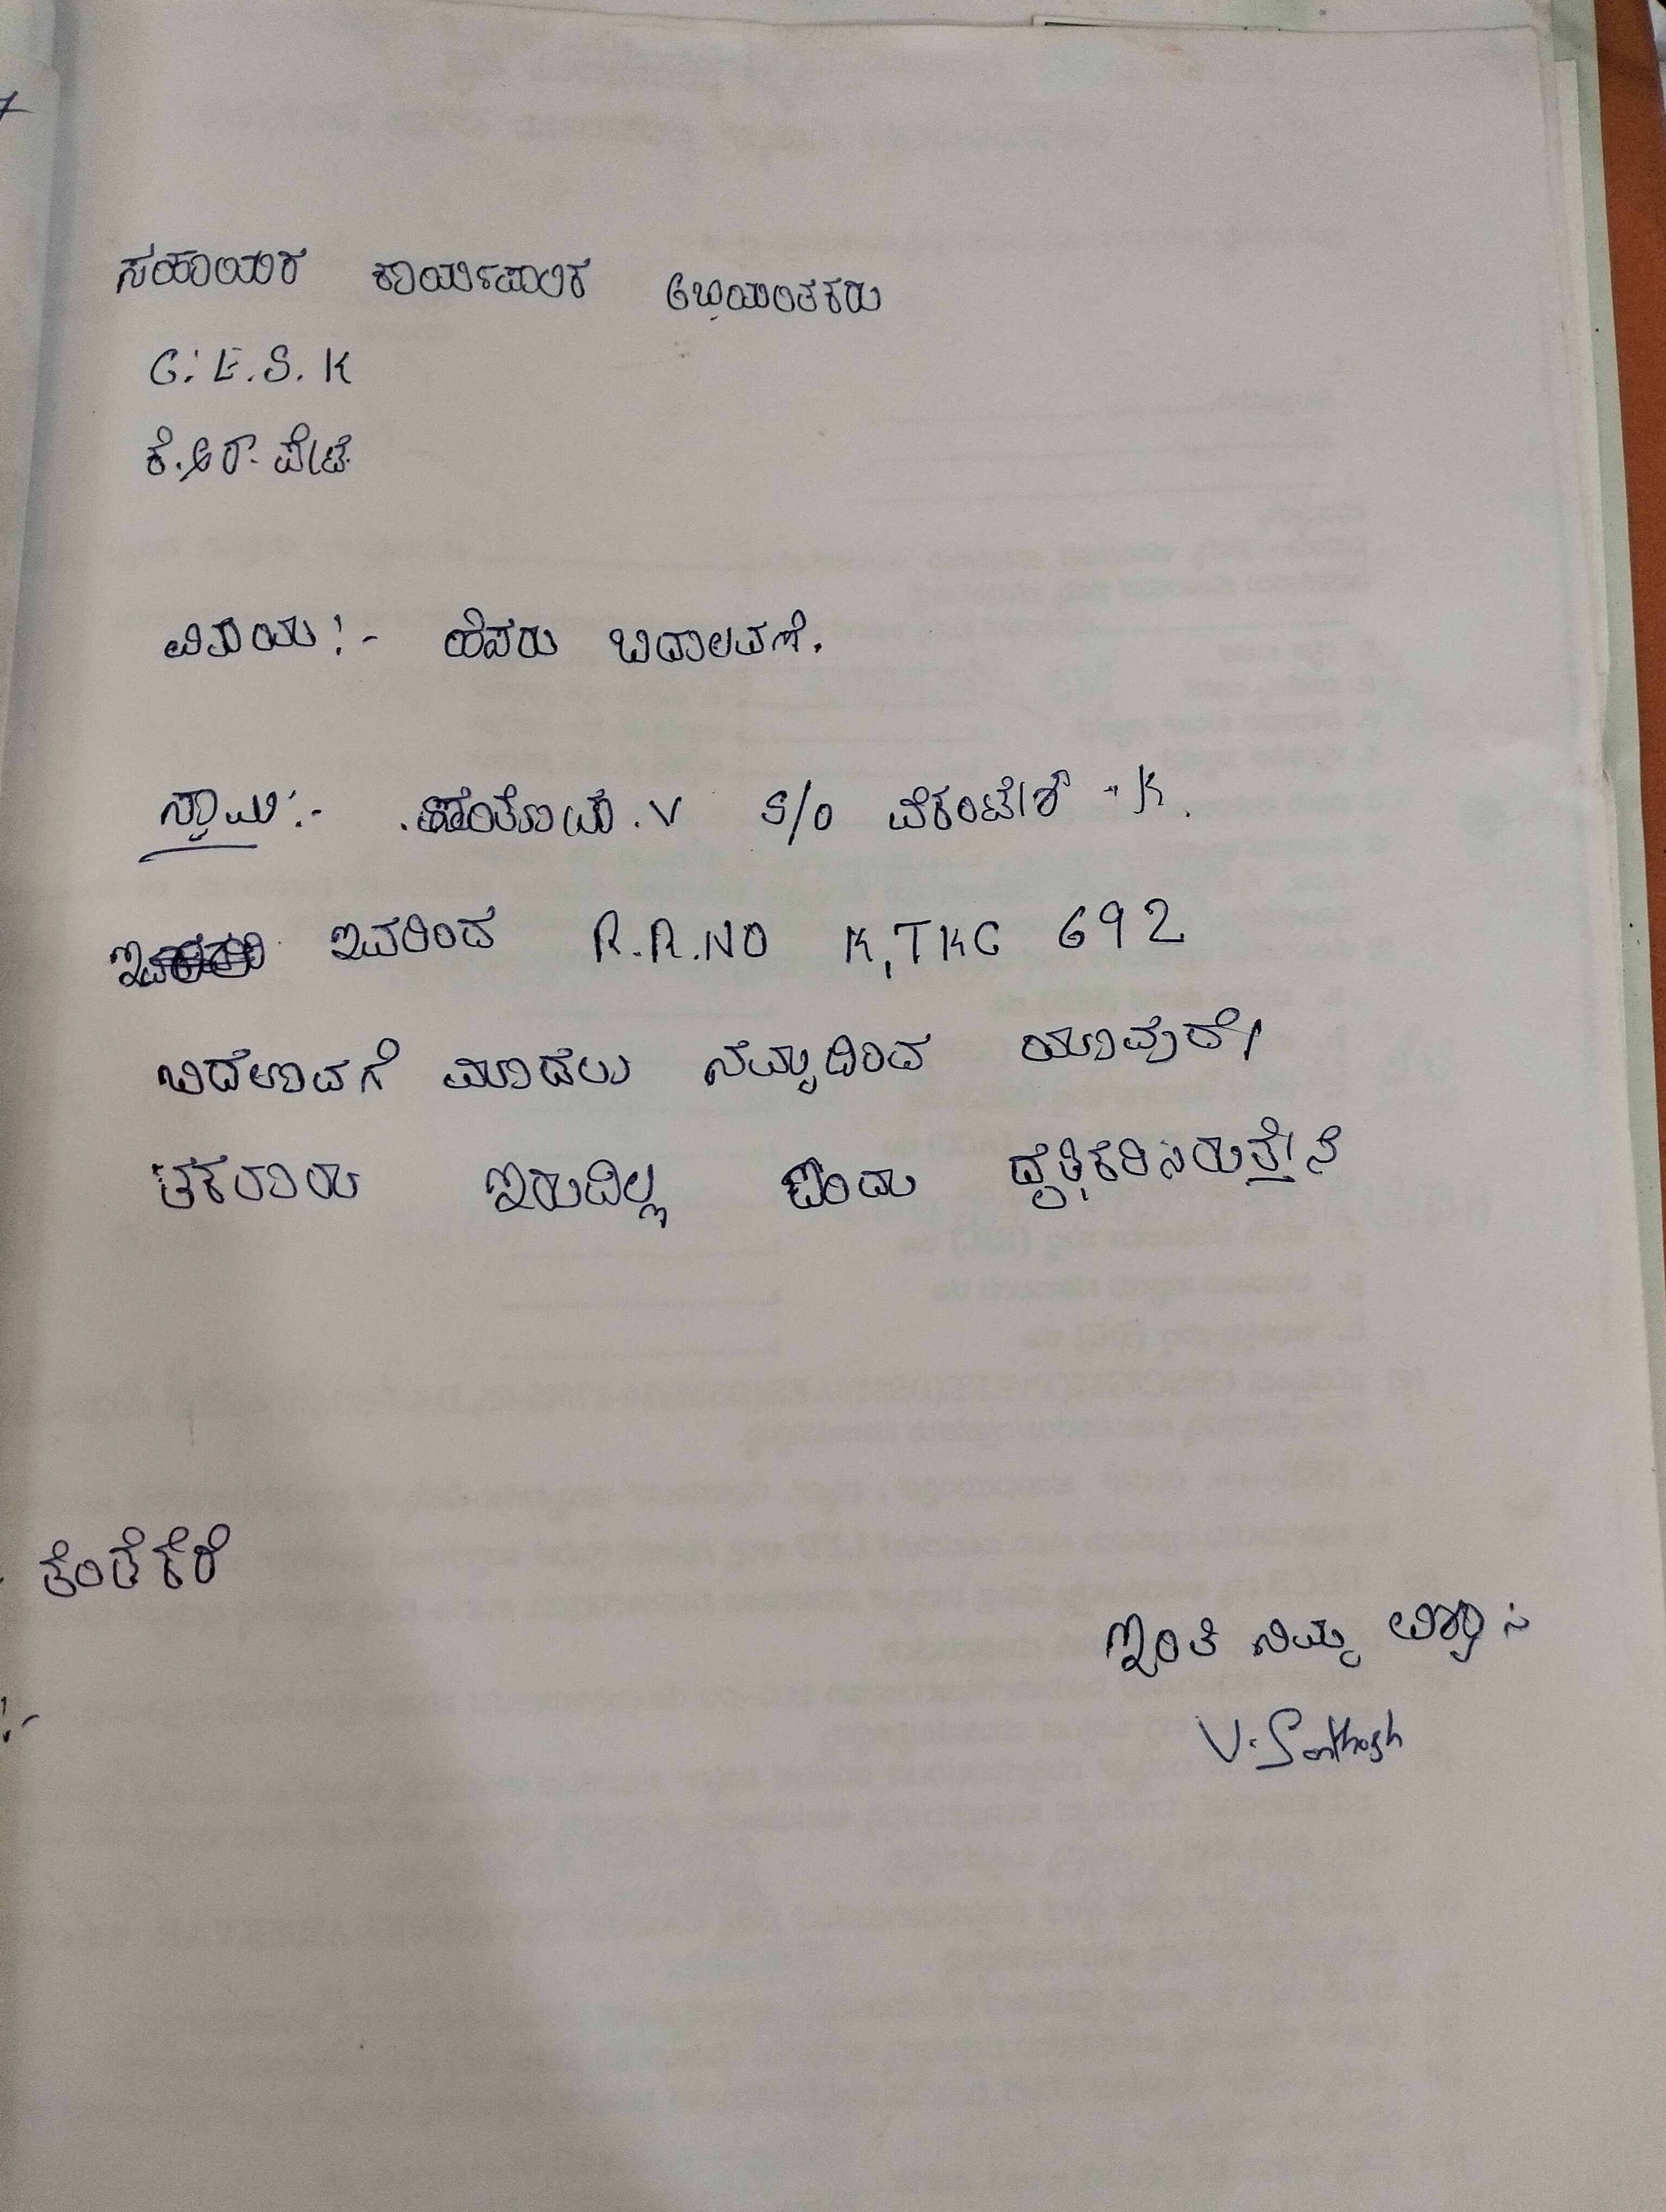 ಸಹಾಯಕ ಕಾರ್ಯಪಾಲಕ ಅಭಿಯಂತಕರು
C.E.S.K
ಕೆ.ಆರ್.ಪೇಟೆ
ವಿಷಯ:- ಹೆಸರು ಬದಾಲವಣೆ.
ಸ್ವಾಮಿ:- ಸಂತೋಷ.V S/o ವೆಕಂಟೇಶ್ - K.
ಇವರಿಂದ R.R.NO K,TKC 692
ಬದಲಾವಗೆ ಮಾಡಲು ನಮ್ಮದಿಂದ ಯಾವುದೇ
ತಕರಾರು ಇರುದಿಲ್ಲ ಎಂದು ದೃತಿಕರಿಸರುತ್ತೇನೆ
ತೆಂತೆಕೆರೆ
:-
ಇಂತಿ ನಿಮ್ಮ ವಿಶ್ವಾಸಿ
V. Santhosh